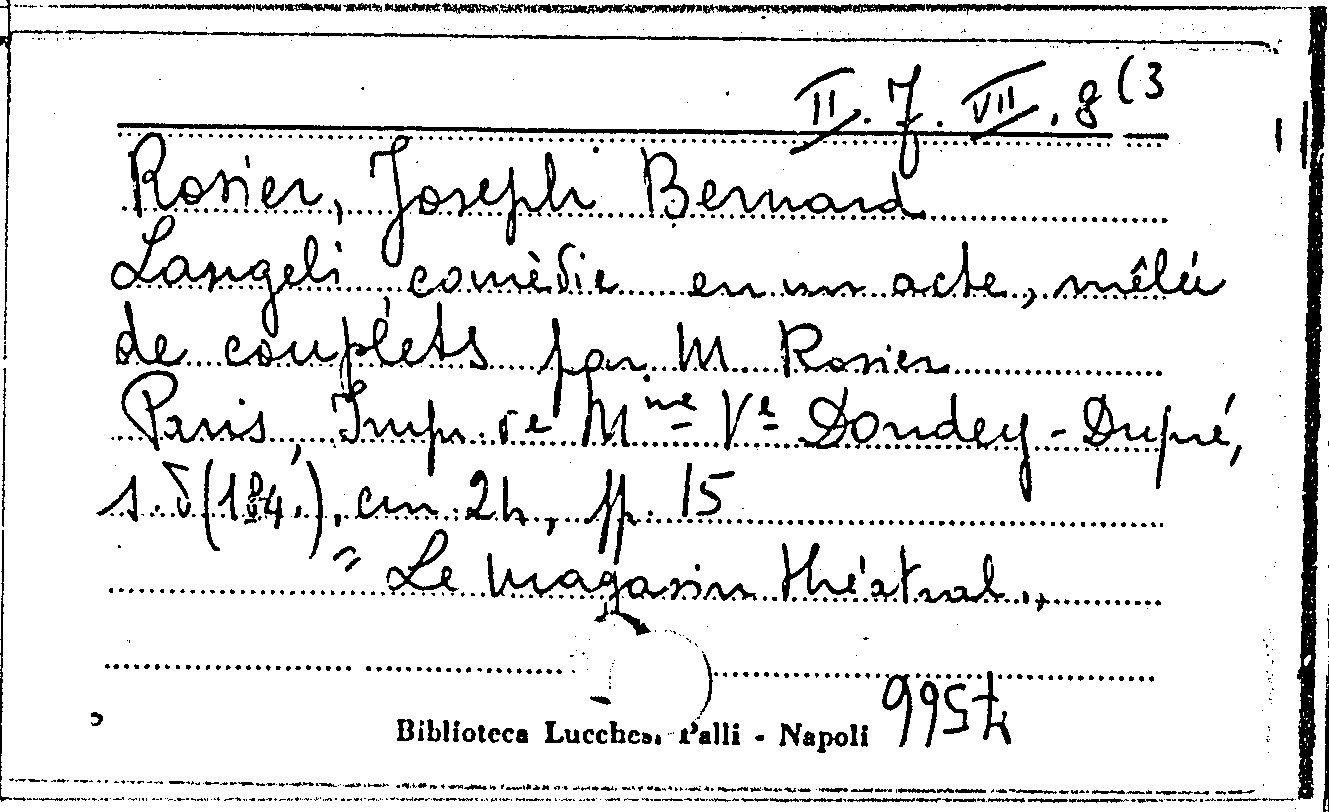 II. 7. VII. 8 (3
Rosier, Joseph Bernard
Langeli, comèdie en un acte, mêlée
de couplets par M. Rosier
Paris, Imp. de M.me V.e Dondey-Dupré,
s. d (184.), cm 24, pp. 15
"Le magasin théatral"
7566
Biblioteca Lucchesi Palli - Napoli